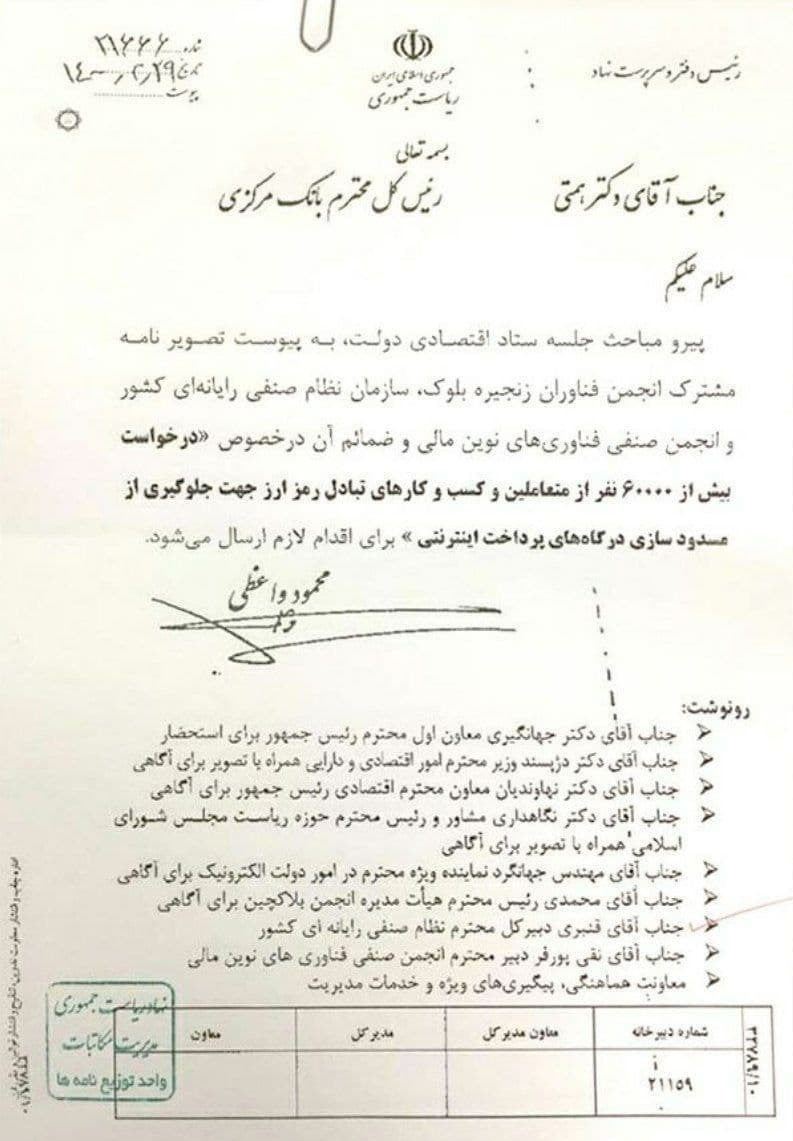 رئیس دفتر و سرپرست نهاد
جمهوری اسلامی ایران
ریاست جمهوری
شماره ۲۱۶۶۶
تاریخ ۱۴۰۰/۲/۲۹
پیوست
بسمه تعالی
جناب آقای دکتر همتی
رئیس کل محترم بانک مرکزی
سلام علیکم
پیرو مباحث جلسه ستاد اقتصادی دولت، به پیوست تصویر نامه
مشترک انجمن فناوران زنجیره بلوک، سازمان نظام صنفی رایانه‌ای کشور
و انجمن صنفی فناوری‌های نوین مالی و ضمائم آن درخصوص «درخواست
بیش از ۶۰۰۰۰ نفر از متعاملین و کسب و کارهای تبادل رمز ارز جهت جلوگیری از
مسدود سازی درگاه‌های پرداخت اینترنتی» برای اقدام لازم ارسال می‌شود.
محمود واعظی
رونوشت:
➢ جناب آقای دکتر جهانگیری معاون اول محترم رئیس جمهور برای استحضار
➢ جناب آقای دکتر دژپسند وزیر محترم امور اقتصادی و دارایی همراه با تصویر برای آگاهی
➢ جناب آقای دکتر نهاوندیان معاون محترم اقتصادی رئیس جمهور برای آگاهی
➢ جناب آقای دکتر نگاهداری مشاور و رئیس محترم حوزه ریاست مجلس شورای
اسلامی همراه با تصویر برای آگاهی
➢ جناب آقای مهندس جهانگرد نماینده ویژه محترم در امور دولت الکترونیک برای آگاهی
➢ جناب آقای محمدی رئیس محترم هیأت مدیره انجمن بلاکچین برای آگاهی
➢ جناب آقای قنبری دبیرکل محترم نظام صنفی رایانه ای کشور
➢ جناب آقای نقی پورفر دبیر محترم انجمن صنفی فناوری های نوین مالی
➢ معاونت هماهنگی، پیگیری‌های ویژه و خدمات مدیریت
شماره دبیرخانه
معاون مدیرکل
مدیرکل
معاون
۲۱۱۵۹
۳۳۷۸۹/۱۰
نهاد ریاست جمهوری
مدیریت مکاتبات
واحد توزیع نامه ها